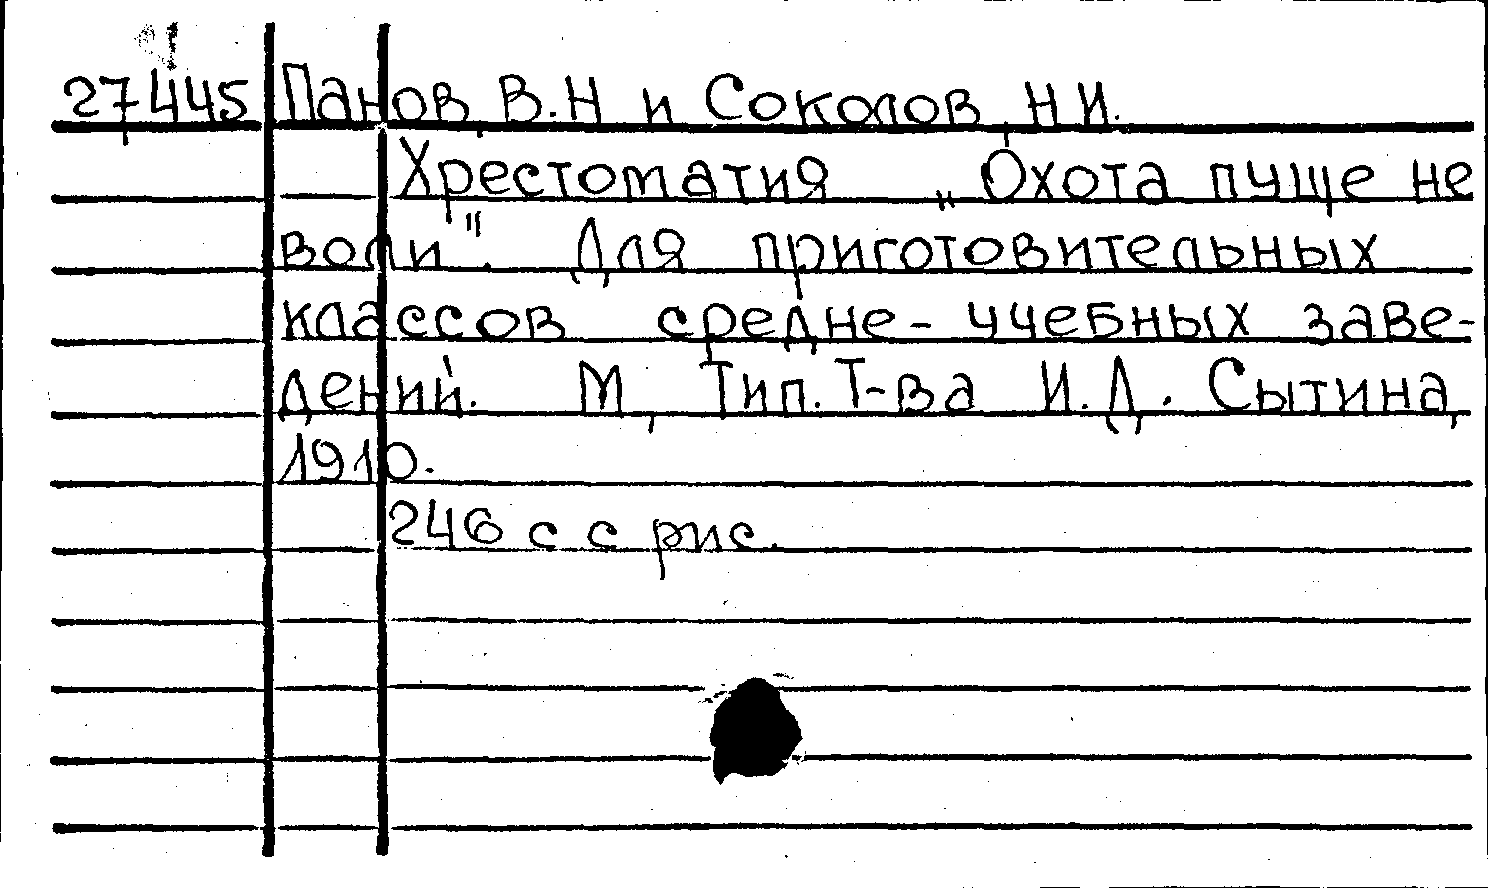 27445 Панов, В.Н и Соколов, Н И.
Хрестоматия „Охота пуще не
воли". Для приготовительных
классов средне-учебных заве-
дений. М, Тип. Т-ва И.Д. Сытина,
1910.
246 с с рис.